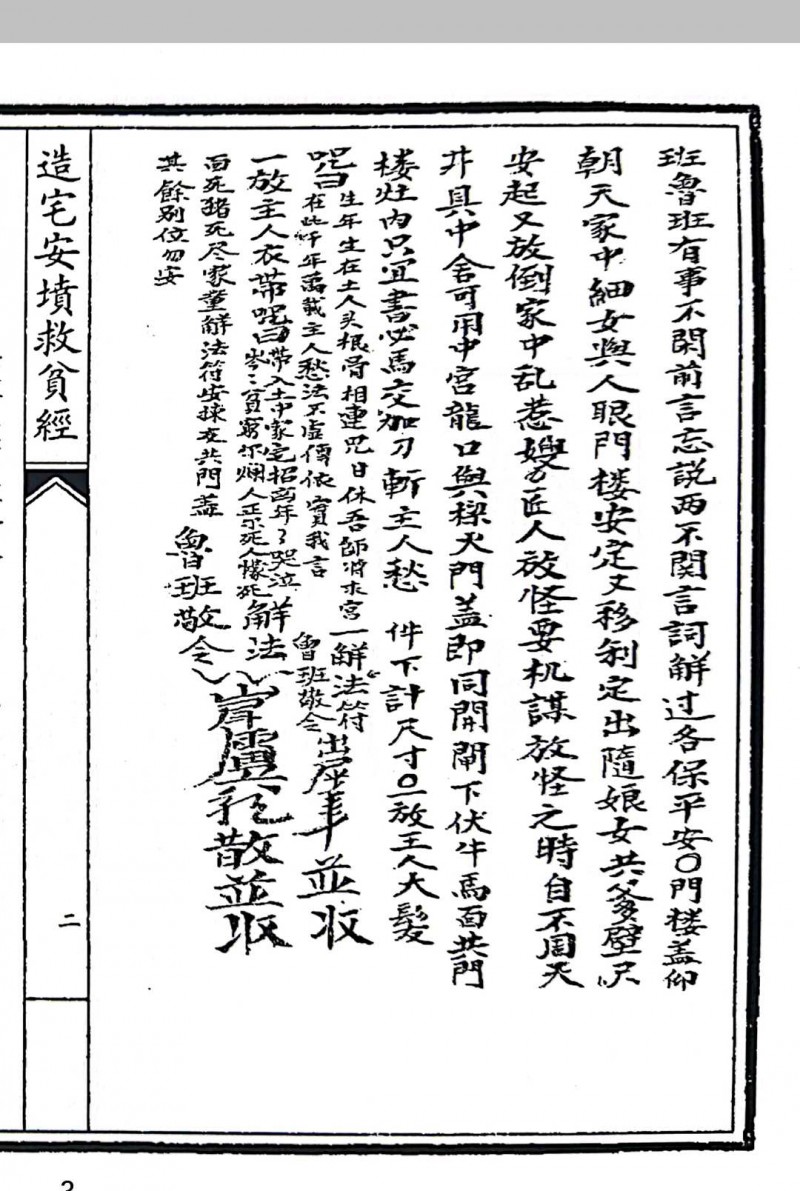 班魯班有事不閑前言忘說两不関言詞解过各保平安〇門楼盖仰
朝天家中細女與人眼門楼安定丈移利定出隨娘女共爹壁尺
安起又放倒家中乱惹嫂匠人放怪要机謀放怪之時自不周天
井具中舍可用中宮龍口與樑天門盖即同開閘下伏牛馬面共門
楼灶内只宜書必馬交加刀斬主人愁 件下計尺寸〇一放主人大髮
咒曰生年生在土人头根骨相連咒日休吾師将求宮
在此千年萬載主人愁法不虛傳依實我言
一解法符
魯班敬令
並收
一放主人衣帶咒曰帶入土中家宅招凶年了哭泣
貧窮人死人死
解法
面死猪死尽家童解法符安揀在共門盖
魯班敬令
散並收
其餘别位勿安
造宅安墳救貧經
二
3